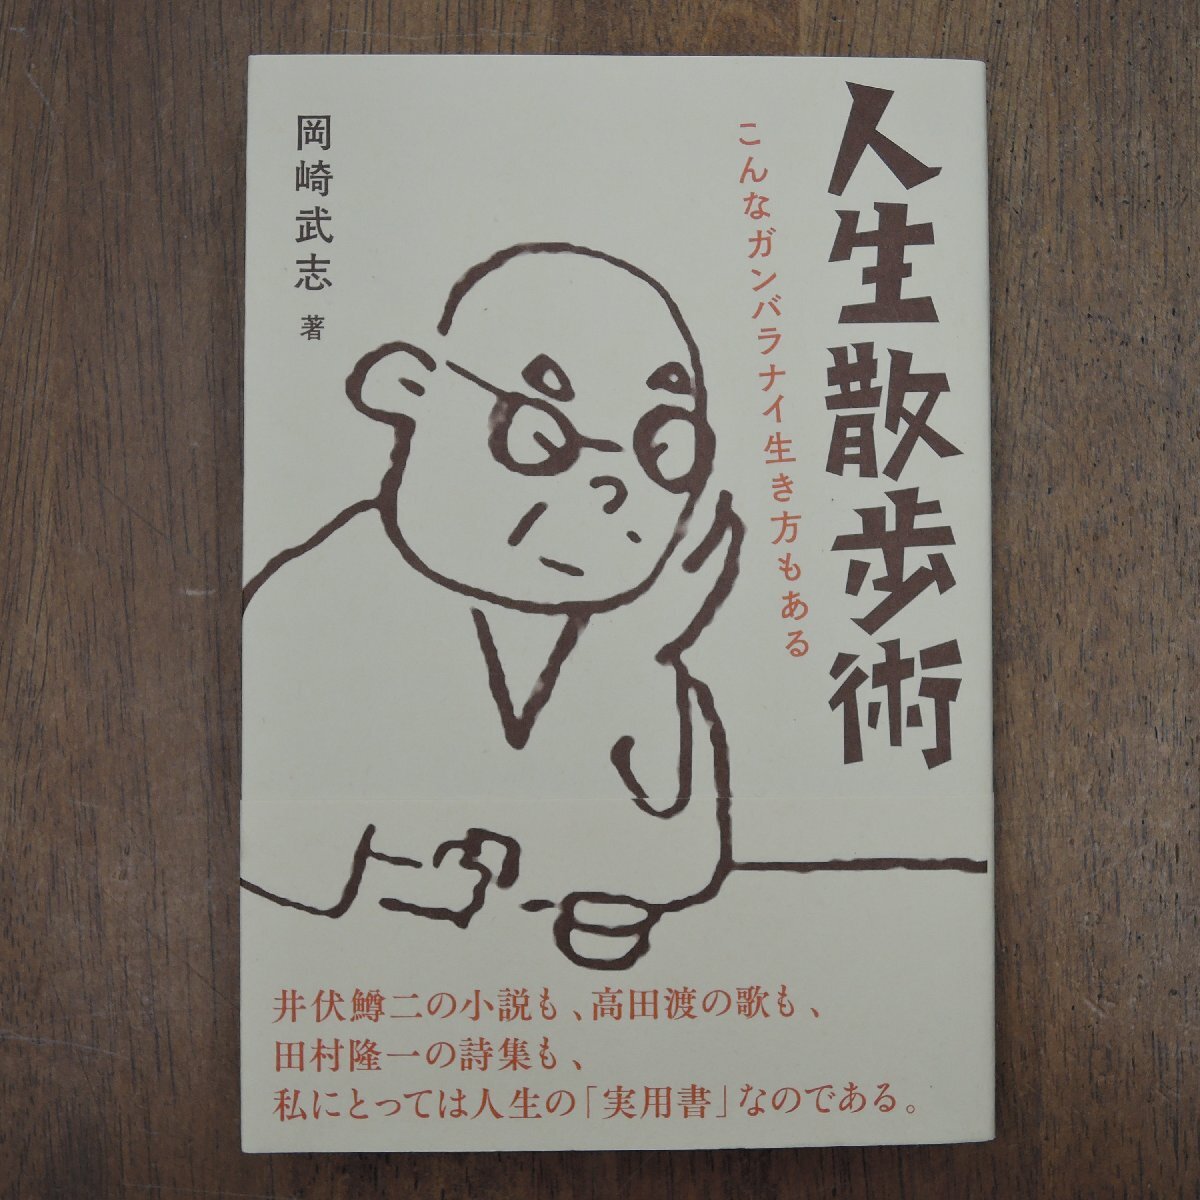 人生散歩術
こんなガンバラナイ生き方もある
岡崎武志 著
井伏鱒二の小説も、高田渡の歌も、
田村隆一の詩集も、
私にとっては人生の「実用書」なのである。